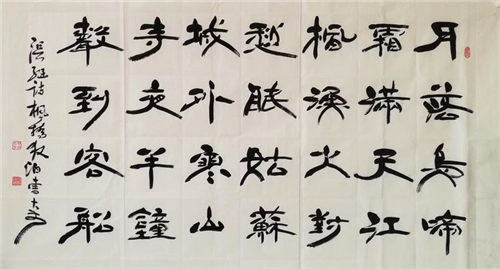 月落烏啼
霜滿天江
楓漁火對
愁眠姑蘇
城外寒山
寺夜半鐘
聲到客船
張繼詩楓橋夜泊